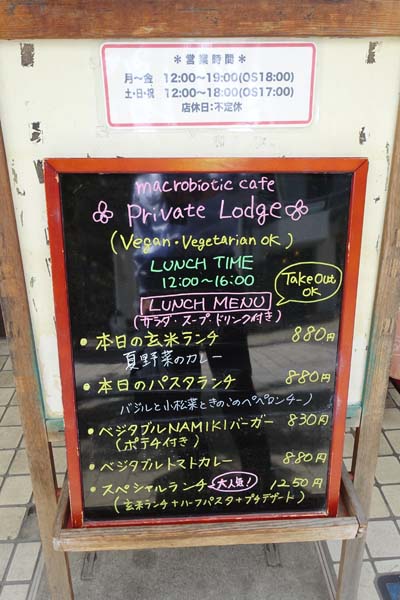 ＊営業時間＊
月〜金 12:00〜19:00(OS18:00)
土・日・祝 12:00〜18:00(OS17:00)
店休日:不定休
macrobiotic cafe
Private Lodge
(Vegan・Vegetarian OK)
LUNCH TIME
12:00〜16:00
Take Out OK
LUNCH MENU
(サラダ・スープ・ドリンク付き)
・本日の玄米ランチ 880円
夏野菜のカレー
・本日のパスタランチ 880円
バジルと小松菜ときのこのペペロンチーノ
・ベジタブルNAMIKIバーガー 830円
(ポテチ付き)
・ベジタブルトマトカレー 880円
・スペシャルランチ 大人気! 1250円
(玄米ランチ+ハーフパスタ+プチデザート)